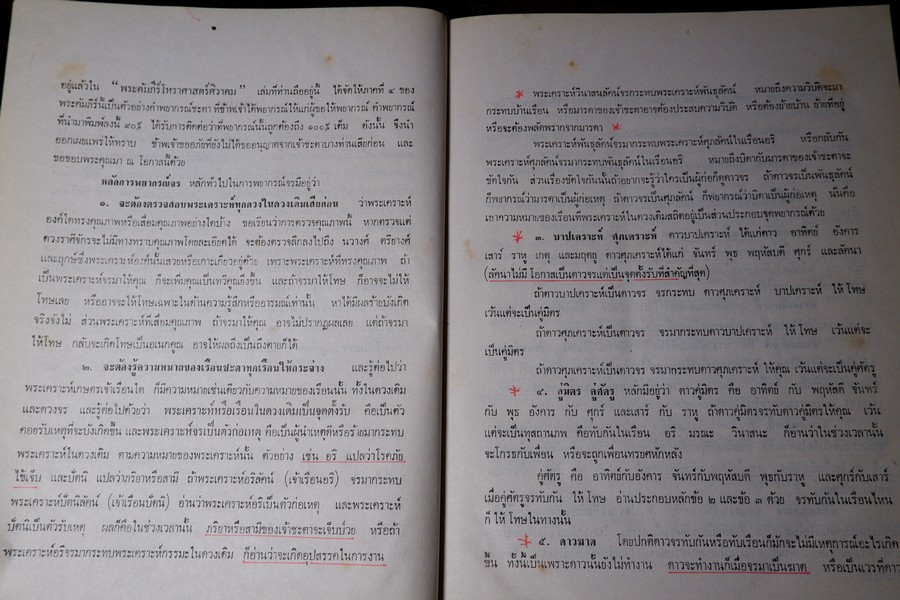 อยู่แล้วใน “พระคัมภีร์โหราศาสตร์ศิวาคม” เล่มที่ท่านถืออยู่นี้ ได้จัดให้ภาคที่ ๔ ของ
พระคัมภีร์นี้เป็นตัวอย่างคำพยากรณ์ชะตา ที่ข้าพเจ้าได้พยากรณ์ให้แก่ผู้ขอให้พยากรณ์ คำพยากรณ์
ที่นำมาพิมพ์ลงนี้ ๙๐% ได้รับการติดต่อว่าที่พยากรณ์นั้นถูกต้องถึง ๑๐๐% เต็ม ดังนั้น จึงนำ
ออกเผยแพร่ให้ทราบ ข้าพเจ้าขออภัยที่ยังไม่ได้ขออนุญาตจากเจ้าชะตาบางท่านเสียก่อน และ
ขอขอบพระคุณมา ณ โอกาสนี้ด้วย
หลักการพยากรณ์จร หลักทั่วไปในการพยากรณ์จรมีอยู่ว่า
๑. จะต้องตรวจสอบพระเคราะห์ทุกดวงในดวงเดิมเสียก่อน ว่าพระเคราะห์
องค์ใดทรงคุณภาพหรือเสื่อมคุณภาพอย่างใดบ้าง ขอเรียนว่าการตรวจคุณภาพนี้ หากตรวจแต่
ดวงราศีจักรจะไม่มีทางทราบคุณภาพโดยละเอียดได้ จะต้องตรวจลึกลงไปถึง นวางศ์ ตรียางศ์
และฤกษ์ซึ่งพระเคราะห์องค์นั้นเสวยหรือเกาะเกี่ยวอยู่ด้วย เพราะพระเคราะห์ที่ทรงคุณภาพ ถ้า
เป็นพระเคราะห์จรมาให้คุณ ก็จะเพิ่มคุณเป็นทวีคุณยิ่งขึ้น และถ้าจรมาให้โทษ ก็อาจจะไม่ให้
โทษเลย หรืออาจจะให้โทษเฉพาะในด้านความรู้สึกหรืออารมณ์เท่านั้น หาได้มีผลร้ายบังเกิด
จริงจังไม่ ส่วนพระเคราะห์ที่เสื่อมคุณภาพ ถ้าจรมาให้คุณ อาจไม่ปรากฏผลเลย แต่ถ้าจรมา
ให้โทษ กลับจะเกิดโทษเป็นอเนกคุณ อาจให้ผลถึงเป็นถึงตายก็ได้
๒. จะต้องรู้ความหมายของเรือนชะตาทุกเรือนให้กระจ่าง และรู้ต่อไปว่า
พระเคราะห์เกษตรเจ้าเรือนใด ก็มีความหมายเช่นเดียวกับความหมายของเรือนนั้น ทั้งในดวงเดิม
และดวงจร และรู้ต่อไปด้วยว่า พระเคราะห์หรือเรือนในดวงเดิมเป็นจุดตั้งรับ คือเป็นตัว
คอยรับเหตุที่จะบังเกิดขึ้น และพระเคราะห์จรเป็นตัวก่อเหตุ คือเป็นผู้นำเหตุดีหรือร้ายมากระทบ
พระเคราะห์ในดวงเดิม ตามความหมายของพระเคราะห์นั้น ตัวอย่าง เช่น อริ แปลว่าโรคภัย
ไข้เจ็บ และปัตนิ แปลว่าภริยาหรือสามี ถ้าพระเคราะห์อริลัคน์ (เจ้าเรือนอริ) จรมากระทบ
พระเคราะห์ปัตนิลัคน์ (เจ้าเรือนปัตนิ) อ่านว่าพระเคราะห์อริเป็นตัวก่อเหตุ และพระเคราะห์
ปัตนิเป็นตัวรับเหตุ ผลก็คือในช่วงเวลานั้น ภริยาหรือสามีของเจ้าชะตาจะเจ็บป่วย หรือถ้า
พระเคราะห์อริจรมากระทบพระเคราะห์กรรมะในดวงเดิม ก็อ่านว่าจะเกิดอุปสรรคในการงาน
พระเคราะห์วินาสนลัคน์จรกระทบพระเคราะห์พันธุลัคน์ หมายถึงความวิบัติจะมา
กระทบบ้านเรือน หรือมารดาของเจ้าชะตาอาจต้องประสบความวิบัติ หรือต้องย้ายบ้าน ย้ายที่อยู่
หรือจะต้องพลัดพรากจากมารดา
พระเคราะห์พันธุลัคน์จรมากระทบพระเคราะห์ศุภลัคน์ในเรือนอริ หรือกลับกัน
พระเคราะห์ศุภลัคน์จรมากระทบพันธุลัคน์ในเรือนอริ หมายถึงบิดากับมารดาของเจ้าชะตาจะ
ขัดใจกัน ส่วนเรื่องขัดใจกันนั้นถ้าอยากจะรู้ว่าใครเป็นผู้ก่อก็ดูดาวจร ถ้าดาวจรเป็นพันธุลัคน์
ก็พยากรณ์ว่ามารดาเป็นผู้ก่อเหตุ ถ้าดาวจรเป็นศุภลัคน์ ก็พยากรณ์ว่าบิดาเป็นผู้ก่อเหตุ นั่นคือ
เอาความหมายของเรือนที่พระเคราะห์ในดวงเดิมสถิตอยู่เป็นส่วนประกอบจุดพยากรณ์ด้วย
๓. บาปเคราะห์ ศุภเคราะห์ ดาวบาปเคราะห์ ได้แก่ดาว อาทิตย์ อังคาร
เสาร์ ราหู เกตุ และมฤตยู ดาวศุภเคราะห์ได้แก่ จันทร์ พุธ พฤหัสบดี ศุกร์ และลัคนา
(ลัคนาไม่มีโอกาสเป็นดาวจรแต่เป็นจุดตั้งรับที่สำคัญที่สุด)
ถ้าดาวบาปเคราะห์เป็นดาวจร จรกระทบ ดาวศุภเคราะห์ บาปเคราะห์ ให้โทษ
เว้นแต่จะเป็นคู่มิตร
ถ้าดาวศุภเคราะห์เป็นดาวจร จรมากระทบดาวบาปเคราะห์ ให้โทษ เว้นแต่จะ
เป็นคู่มิตร
ถ้าดาวศุภเคราะห์เป็นดาวจร จรมากระทบดาวศุภเคราะห์ ให้คุณ เว้นแต่จะเป็นคู่ศัตรู
๔. คู่มิตร คู่ศัตรู หลักมีอยู่ว่า ดาวคู่มิตร คือ อาทิตย์ กับ พฤหัสบดี จันทร์
กับ พุธ อังคาร กับ ศุกร์ และเสาร์ กับ ราหู ถ้าดาวคู่มิตรจรทับดาวคู่มิตรให้คุณ เว้น
แต่จะเป็นทุสถานภพ คือทับกันในเรือน อริ มรณะ วินาสนะ ก็อ่านว่าในช่วงเวลานั้น
จะโกรธกับเพื่อน หรือจะถูกเพื่อนทรยศหักหลัง
คู่ศัตรู คือ อาทิตย์กับอังคาร จันทร์กับพฤหัสบดี พุธกับราหู และศุกร์กับเสาร์
เมื่อคู่ศัตรูจรทับกัน ให้โทษ อ่านประกอบหลักข้อ ๒ และข้อ ๓ ด้วย จรทับกันในเรือนไหน
ก็ให้โทษในทางนั้น
๕. ดาวฆาต โดยปกติดาวจรทับกันหรือทับเรือนก็มักจะไม่มีเหตุการณ์อะไรเกิด
ขึ้น ทั้งนี้เป็นเพราะดาวนั้นยังไม่ทำงาน ดาวจะทำงานก็เมื่อจรมาเป็นฆาต หรือเป็นเวรที่ดาว